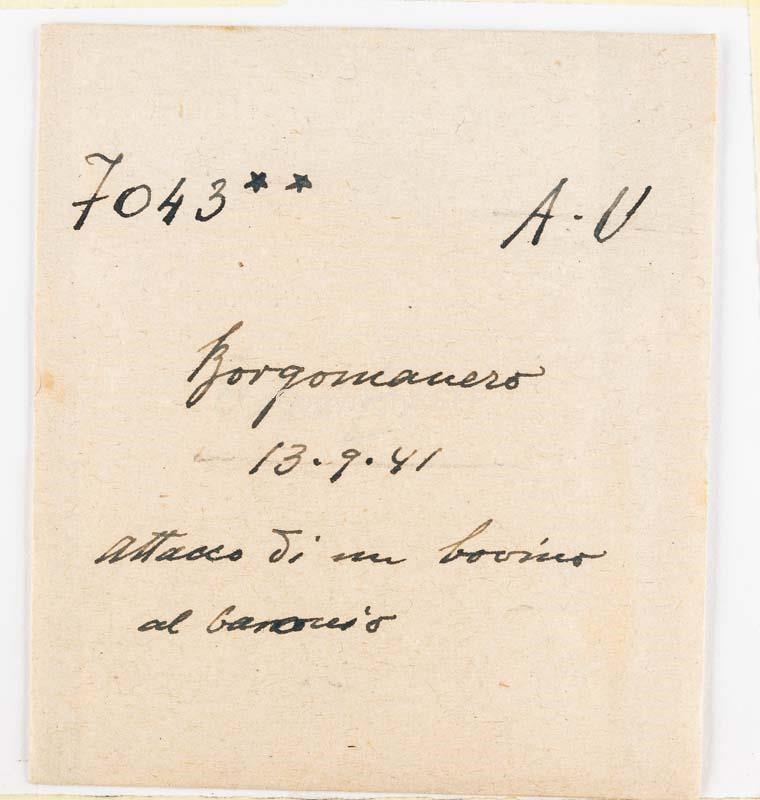 7043** A.V
Borgomanero
13.9.41
attacco di un bovino
al